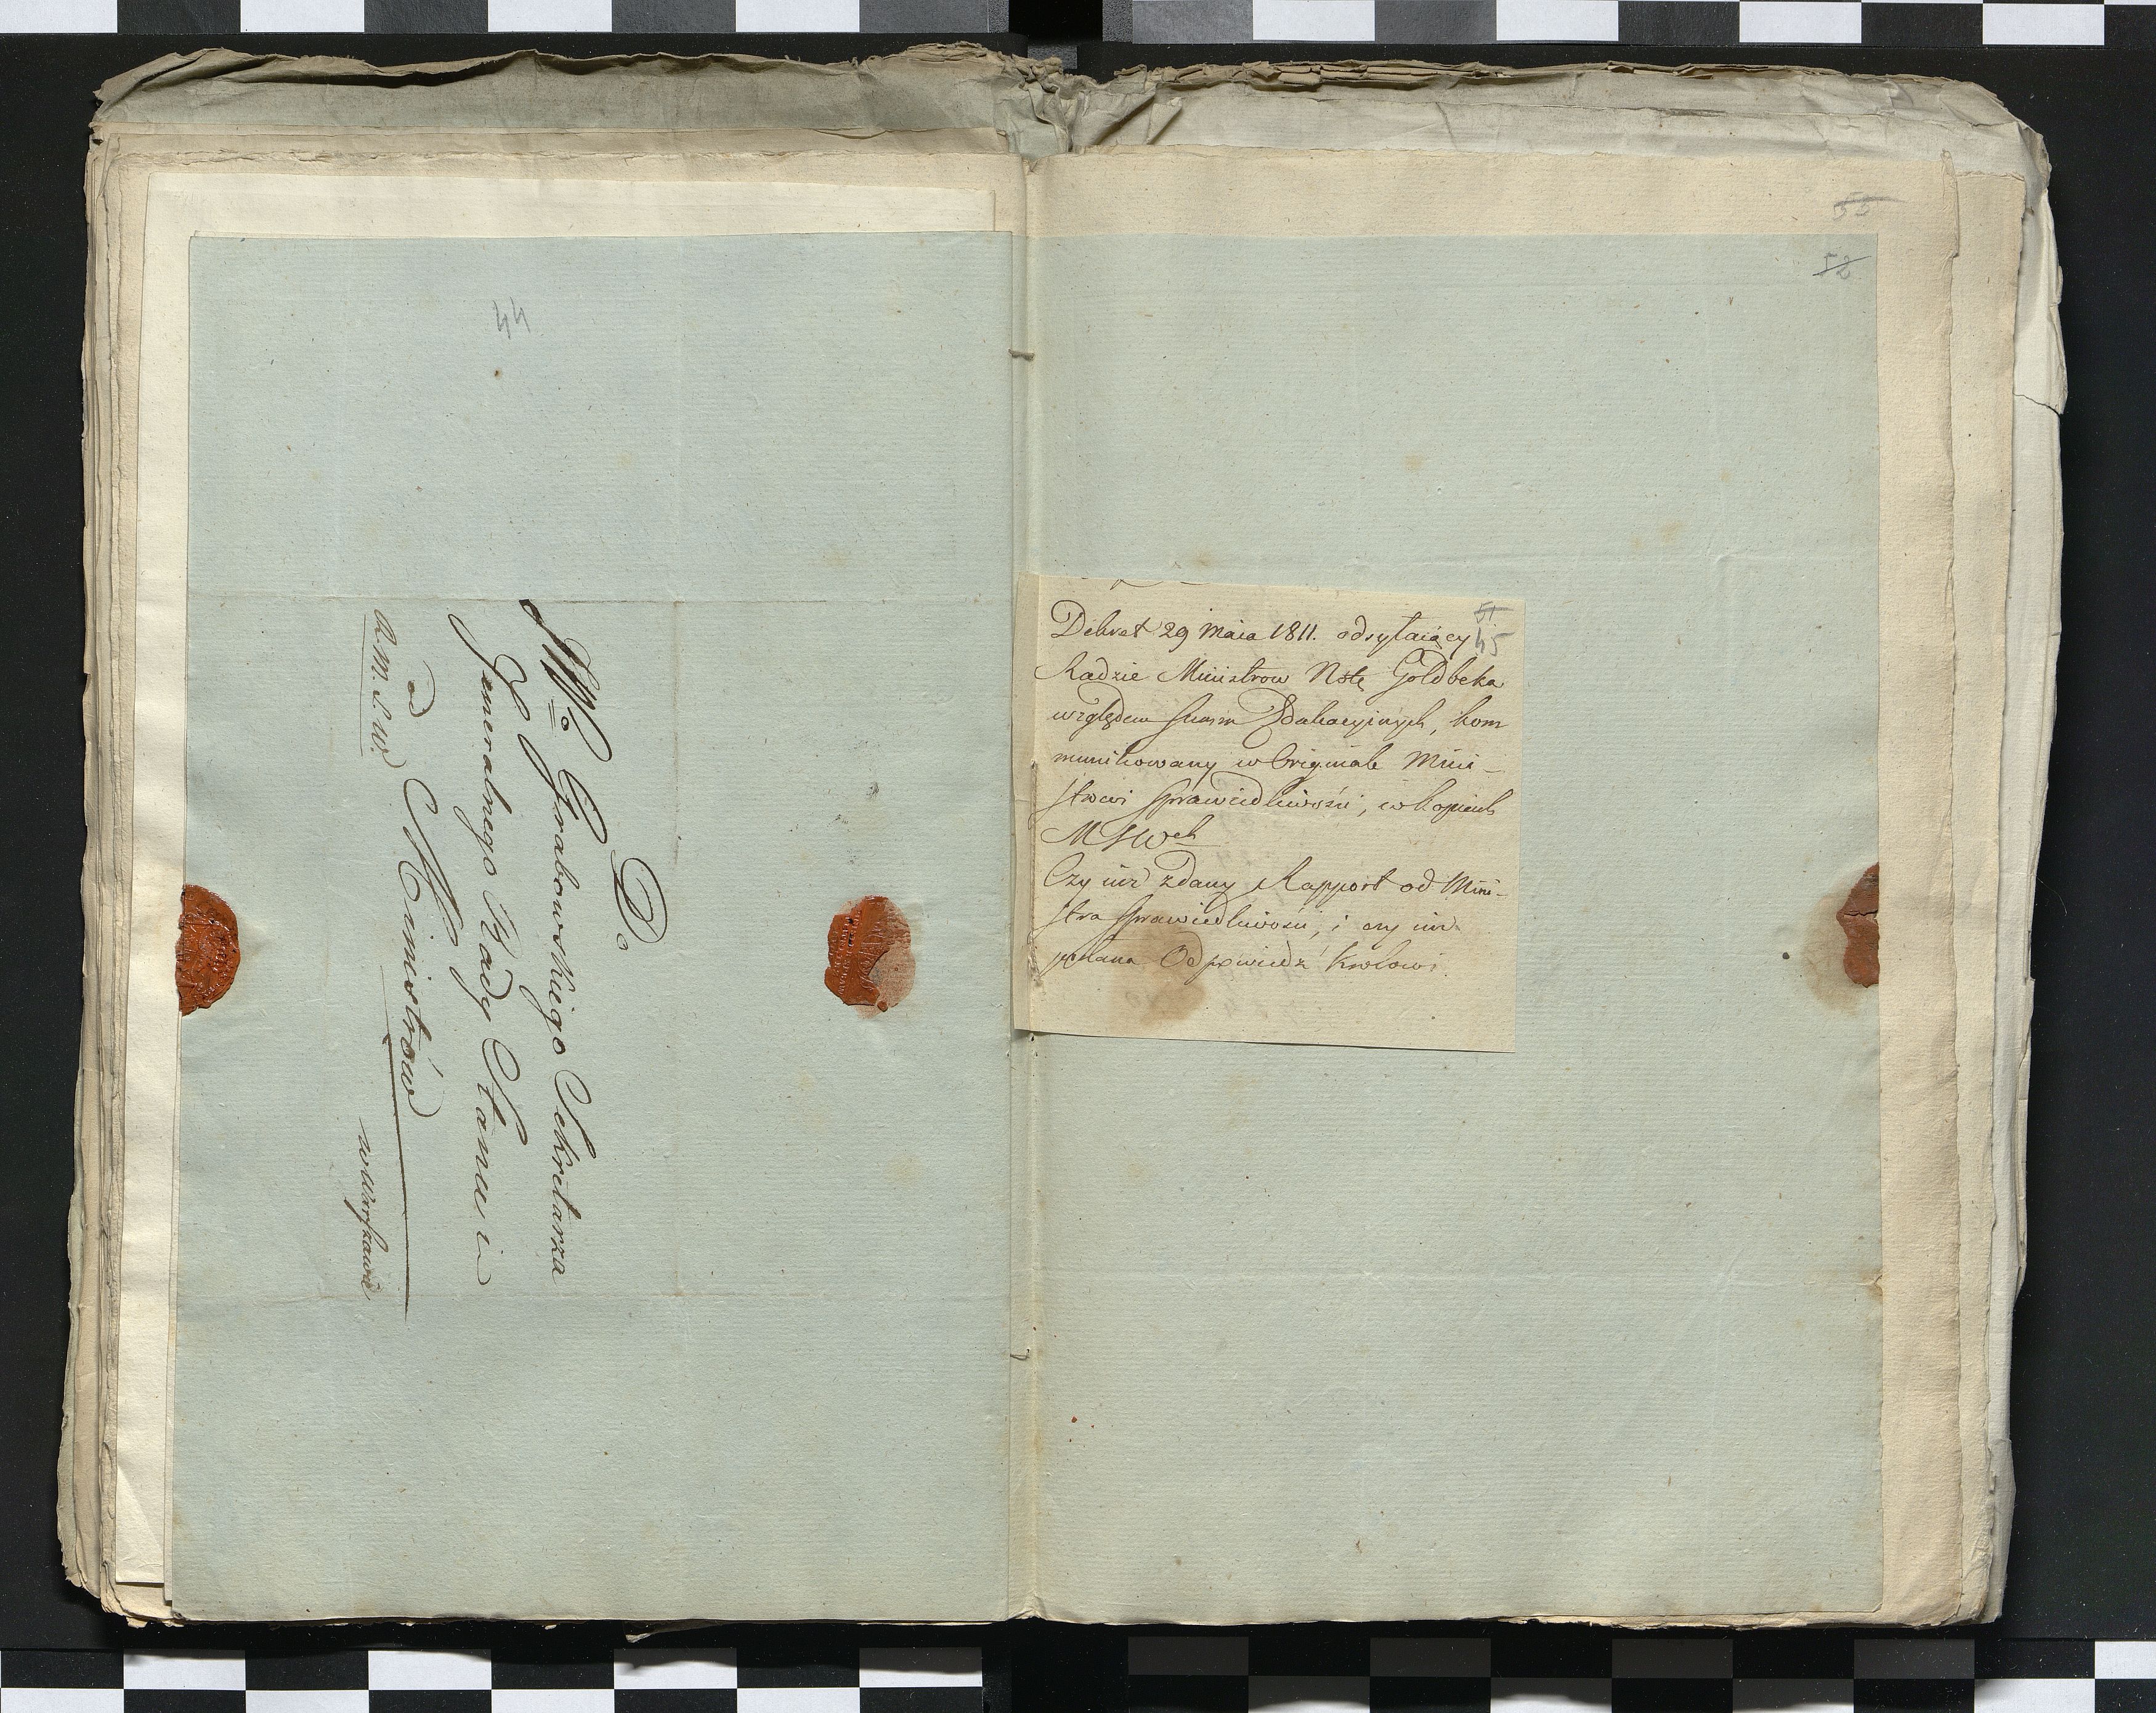 44
Do
JWo Grabowskiego Sekretarza
Jeneralnego Rady Stanu i
Ministrów
w Warszawie
od
R.M.S.W.
55
52
51
45
Dekret 29 Maia 1811. odsyłaiący
Radzie Ministrow Notę Goldbeka
względem summ Edukacyinych, kom
munikowany w Originale Mini-
strowi Sprawiedliwości, w kopiach
MSWch
Czy iuż zdany Rapport od Mini-
stra Sprawiedliwości, i czy iuż
Odpowiedź Krolowi.